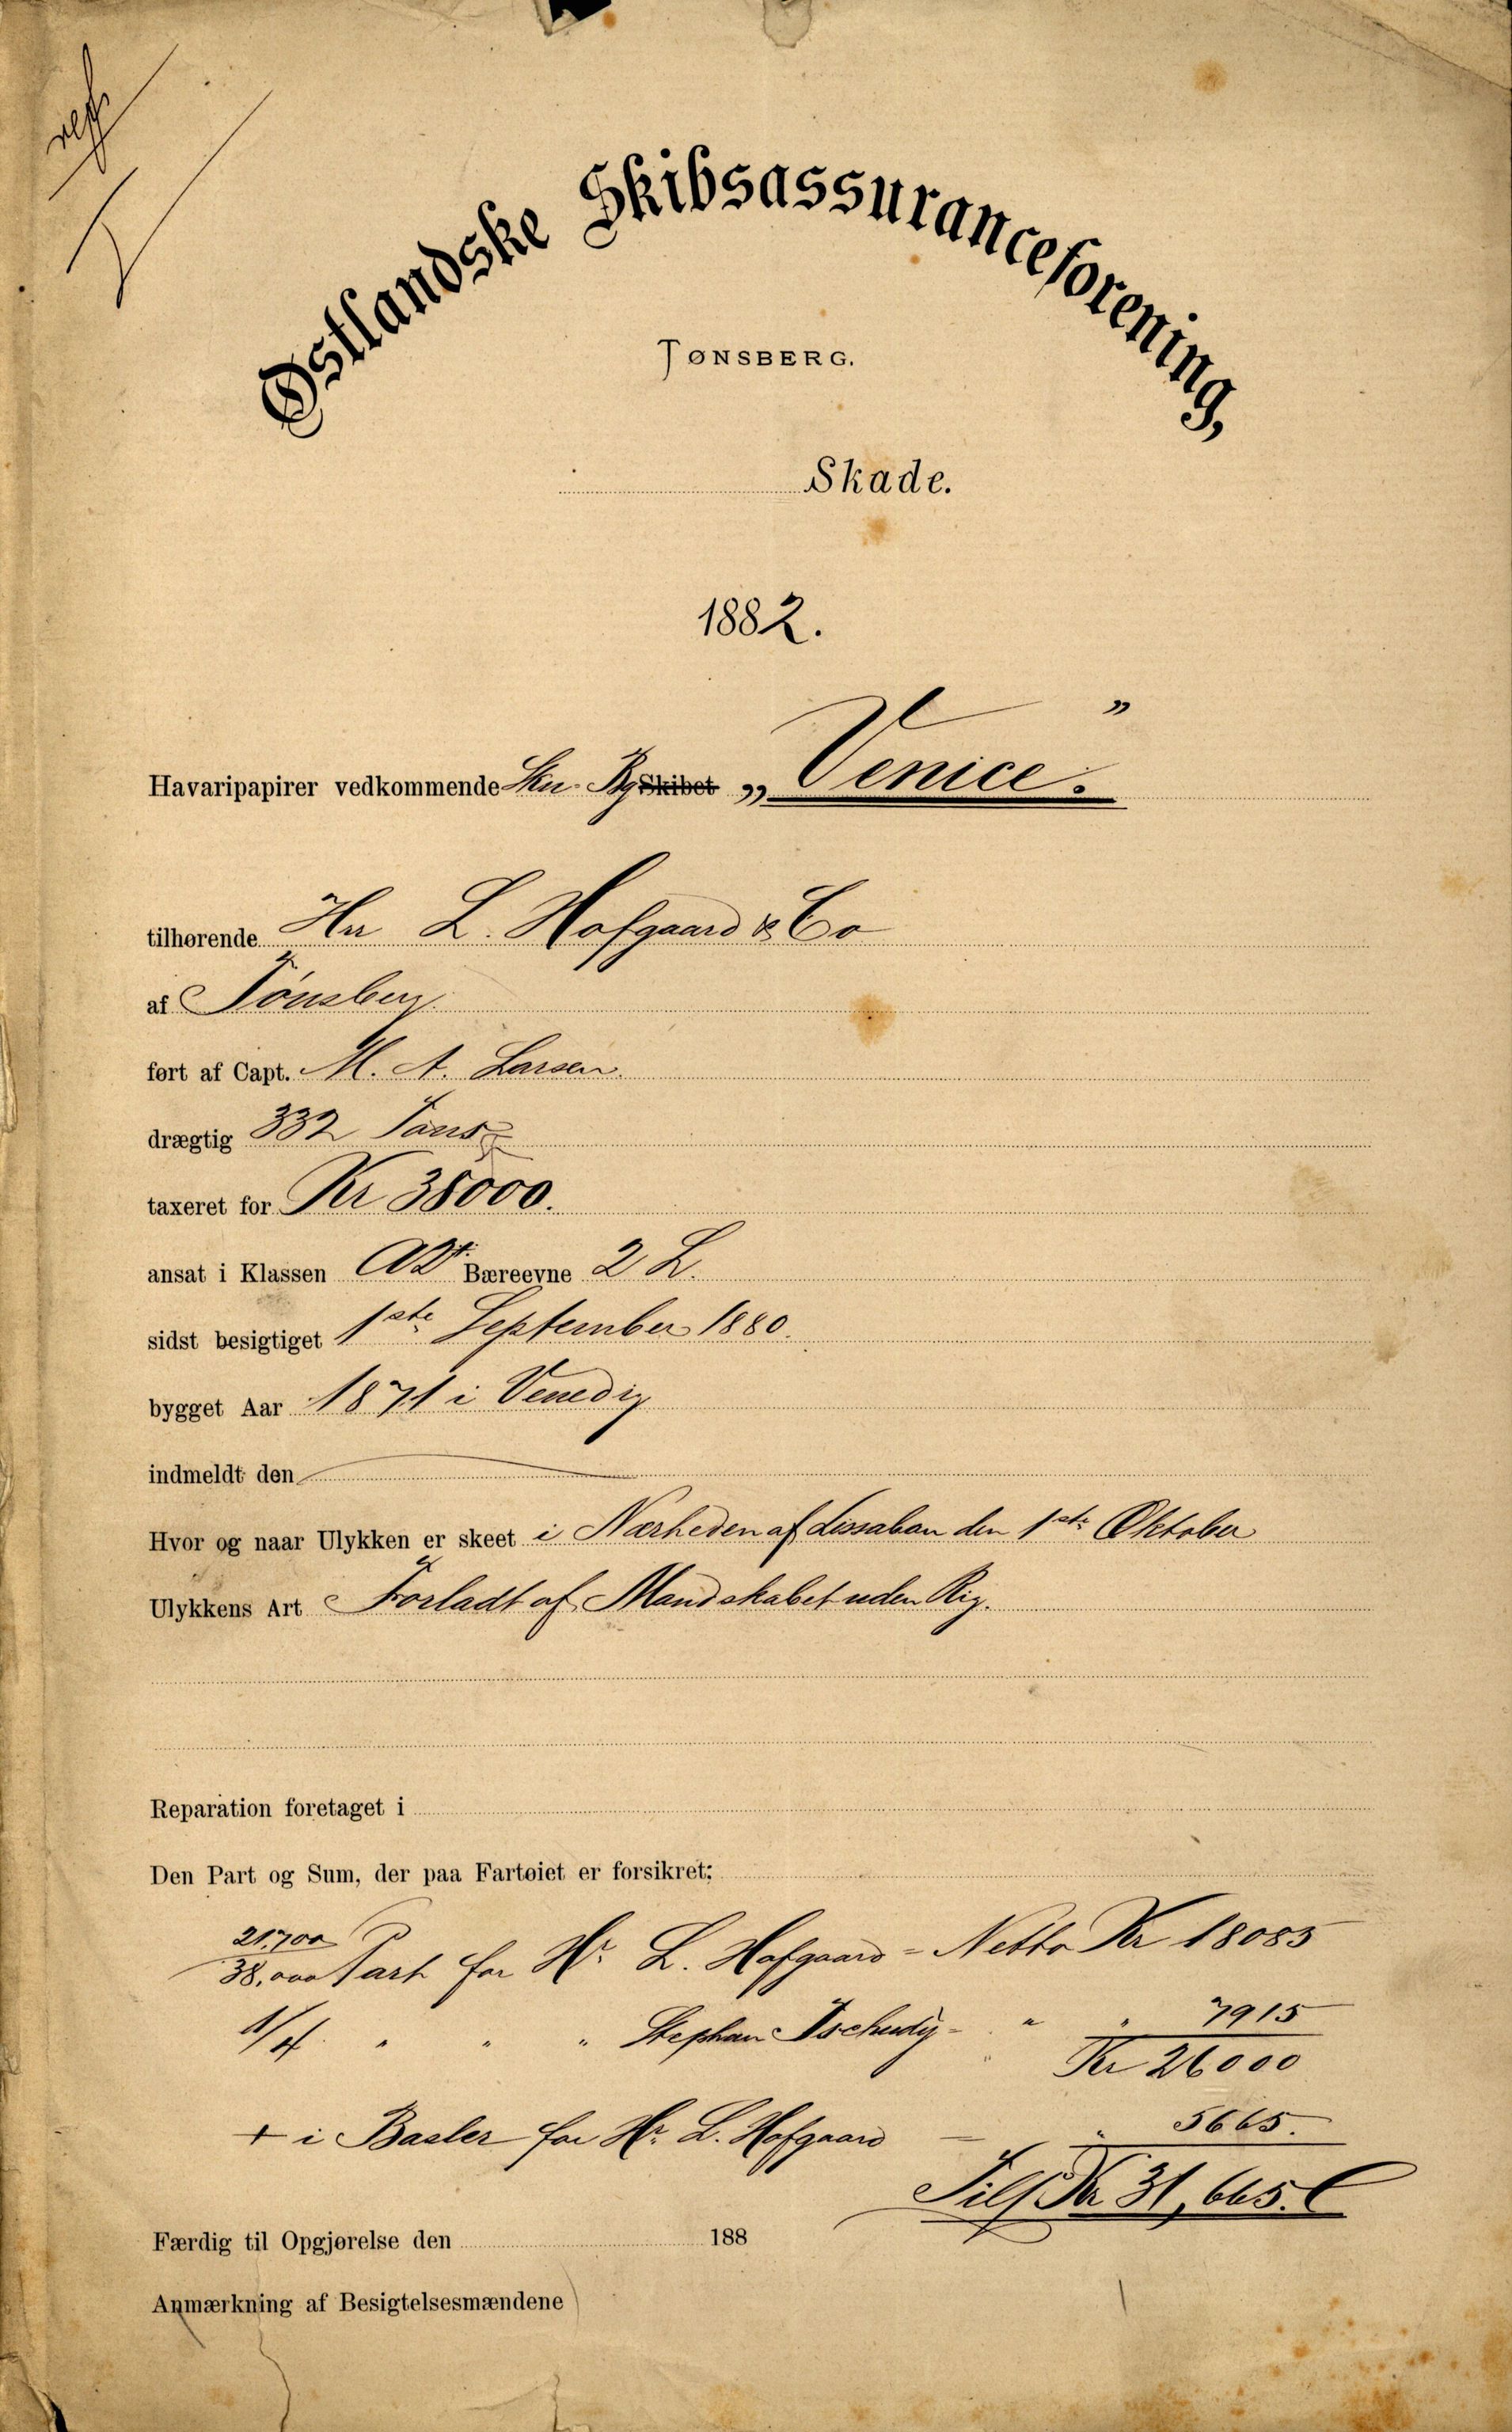 Østlandske Skibsassuranceforening,
TØNSBERG.
Skade.
1882.
Havaripapirer vedkommende Skn. Bg Skibet „Venice."
tilhørende Hrr L. Hofgaard & Co
af Tønsberg.
ført af Capt. M. A. Larsen.
drægtig 332 Tons
taxeret for Kr 38000.
ansat i Klassen A2 Bæreevne 2 L.
sidst besigtiget 1ste September 1880.
bygget Aar 1871 i Venedig
indmeldt den
Hvor og naar Ulykken er skeet i Nærheden af Lissabon den 1ste Oktober
Ulykkens Art Forladt af Mandskabet uden Rig.
Reparation foretaget i
Den Part og Sum, der paa Fartøiet er forsikret:
21.700/38.000 Part for Hr. L. Hofgaard = Netto Kr 18085
1/4 " " " Stephan Tschudy = " " 7915
Kr 26000
+ i Basler for Hr. L. Hofgaard — " 5665.
Tils. Kr 31,665.
Færdig til Opgjørelse den 188
Anmærkning af Besigtelsesmændene